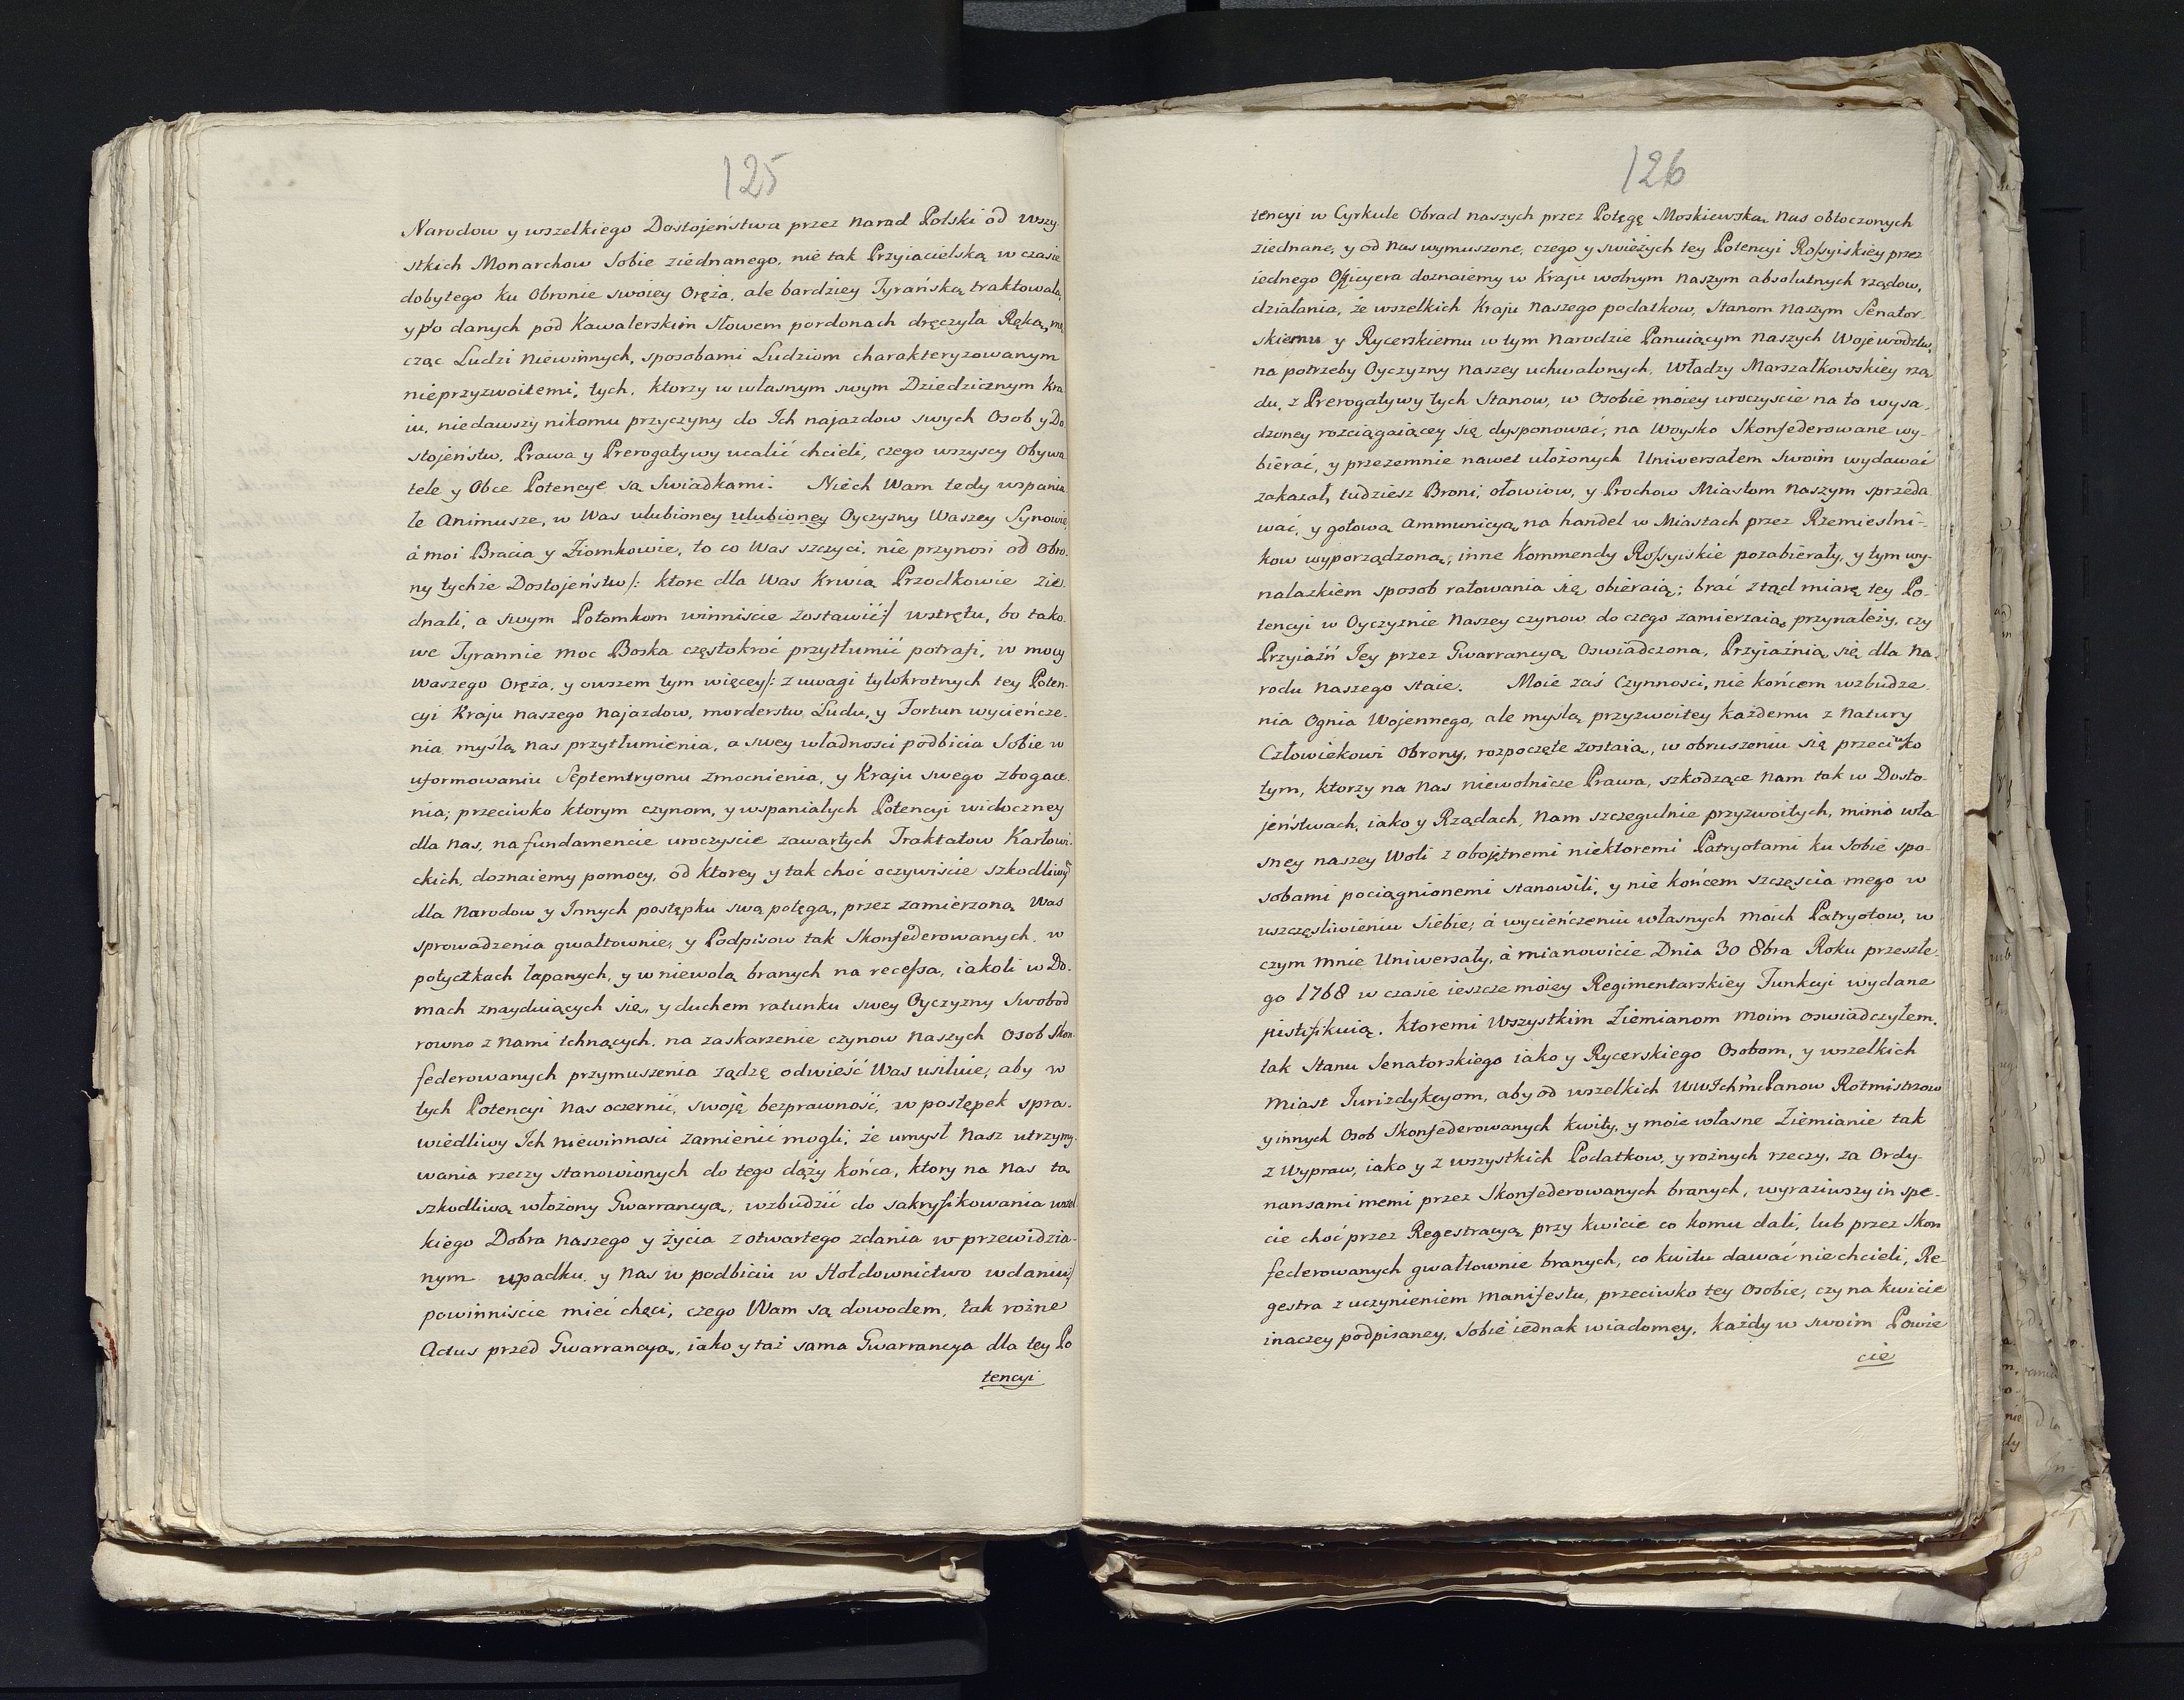 125
Narodow y wszelkiego Dostojeństwa przez Narod Polski od wszy-
stkich Monarchow Sobie ziednanego, nie tak Przyiacielską w czasie
dobytego ku Obronie swoiey Oręża, ale bardziey Tyrańską traktowała,
y po danych pod Kawalerskim słowem pordonach dręczyła Ręką, mę
cząc Ludzi niewinnych, sposobami Ludziom charakteryzowanym
nieprzyzwoitemi, tych, ktorzy w własnym swym Dziedzicznym kra
iu, niedawszy nikomu przyczyny do Ich najazdow swych Osob y Do
stojeństw, Prawa y Prerogatywy ucalić chcieli, czego wszyscy Obywa
tele y Obce Potencye są Swiadkami. Niech Wam tedy wspania
łe Animusze, w Was ulubioney ulubioney Oyczyzny Waszey Synowie,
á moi Bracia y Ziomkowie, to co Was szczyci, nie przynosi od Obro-
ny tychże Dostojeństw /: ktore dla Was krwią Przodkowie zie-
dnali, a swym Potomkom winniscie zostawić :/ wstrętu, bo tako-
we Tyrannie moc Boska częstokroć przytłumić potrafi, w mocy
waszego Oręża, y owszem tym więcey /: z uwagi tylokrotnych tey Poten-
cyi Kraju naszego najazdow, morderstw Ludu, y Fortun wycieńcze-
nia, myślą nas przytłumienia, a swey władnosci podbicia Sobie w
uformowaniu Septemtryonu zmocnienia, y Kraju swego zbogace-
nia; przeciwko ktorym czynom, y wspaniałych Potencyi widoczney
dla nas, na fundamencie uroczyscie zawartych Traktatow Karłowi-
ckich, doznaiemy pomocy, od ktorey y tak choć oczywiscie szkodliwych
dla Narodow y Innych postępku swą potęgą, przez zamierzoną Was
sprowadzenia gwałtownie, y Podpisow tak Skonfederowanych, w
potyczkach łapanych, y w niewolą branych na recessa, iakoli w Do-
mach znayduiących się, y duchem ratunku swey Oyczyzny Swobod
rowno z nami tchnących, na zaskarzenie czynow naszych Osob Skon
federowanych przymuszenia żądzę odwieść Was usilnie, aby w
tych Potencyi nas oczernić, swoję bezprawność, w postępek spra-
wiedliwy Ich niewinnosci zamienić mogli, że umysł Nasz utrzymy-
wania rzeczy stanowionych do tego dąży końca, ktory na Nas tą
szkodliwą włożony Gwarrancyą, wzbudzić do sakryfikowania wszel
kiego Dobra naszego y życia z otwartego zdania w przewidzia-
nym upadku, y Nas w podbiciu w Hołdownictwo wdaniu :/
powinniscie mieć chęci, czego Wam są dowodem, tak rożne
Actus przed Gwarrancyą, iako y taż sama Gwarrancya dla tey Po
tencyi
126
tencyi w Cyrkule Obrad naszych przez Potęgę Moskiewską nas obtoczonych
ziednane, y od nas wymuszone, czego y swieżych tey Potencyi Rossyiskiey przez
iednego Officyera doznaiemy w kraju wolnym naszym absolutnych rządow,
działania, że wszelkich Kraju naszego podatkow, Stanom naszym Senator-
skiemu y Rycerskiemu w tym Narodzie Panuiącym naszych Wojewodztw,
na potrzeby Oyczyzny naszey uchwalonych, Władzy Marszałkowskiey rzą
du, z Prerogatywy tych Stanow, w Osobie moiey uroczyscie na to wysa-
dzoney rozciągaiącey się dysponować, na Woysko Skonfederowane wy-
bierać, y przezemnie nawet ułożonych Uniwersałem swoim wydawać
zakazał, tudziesz Broni, ołowiow, y Prochow Miastom naszym sprzeda
wać, y gotową ammunicyą na handel w Miastach przez Rzemieslni-
kow wyporządzoną, inne Kommendy Rossyiskie pozabierały, y tym wy-
nalazkiem sposob ratowania się obieraią; brać ztąd miarę tey Po-
tencyi w Oyczyznie Naszey czynow do czego zamierzaią przynależy, czy
Przyiaźń Tey przez Gwarrancyą Oswiadczona, Przyiaźnią się dla na-
rodu naszego staie. Moie zaś Czynnosci, nie końcem wzbudze-
nia Ognia Wojennego, ale myslą przyzwoitey każdemu z natury
Człowiekowi Obrony, rozpoczęte zostaią, w obruszeniu się przeciwko
tym, ktorzy na Nas niewolnicze Prawa, szkodzące nam tak w Dosto-
jeństwach, iako y Rządach, nam szczegulnie przyzwoitych, mimo wła-
sney naszey Woli z obojętnemi niektoremi Patryotami ku Sobie spo-
sobami pociągnionemi stanowili, y nie końcem szczęscia mego w
uszczęsliwieniu Siebie, á wycieńczeniu własnych moich Patryotow, w
czym mnie Uniwersały, á mianowicie Dnia 30 8bra Roku przeszłe-
go 1768 w czasie ieszcze moiey Regimentarskiey Funkcyi wydane
justyfikuią. Ktoremi Wszystkim Ziemianom moim oswiadczyłem,
tak Stanu Senatorskiego iako y Rycerskiego Osobom, y wszelkich
Miast Jurizdykcyom, aby od wszelkich WWIchmćPanow Rotmistrzow
y innych Osob Skonfederowanych kwity, y moie własne Ziemianie tak
z Wypraw, iako y z wszystkich Podatkow, y rożnych rzeczy, za Ordy-
nansami memi przez Skonfederowanych branych, wyraziwszy in spe-
cie choć przez Regestracyą przy kwicie co komu dali, lub przez Skon
federowanych gwałtownie branych, co kwitu dawać niechcieli, Re-
gestra z uczynieniem Manifestu, przeciwko tey Osobie, czy na kwicie
inaczey podpisaney, Sobie iednak wiadomey, każdy w swoim Powie
cie